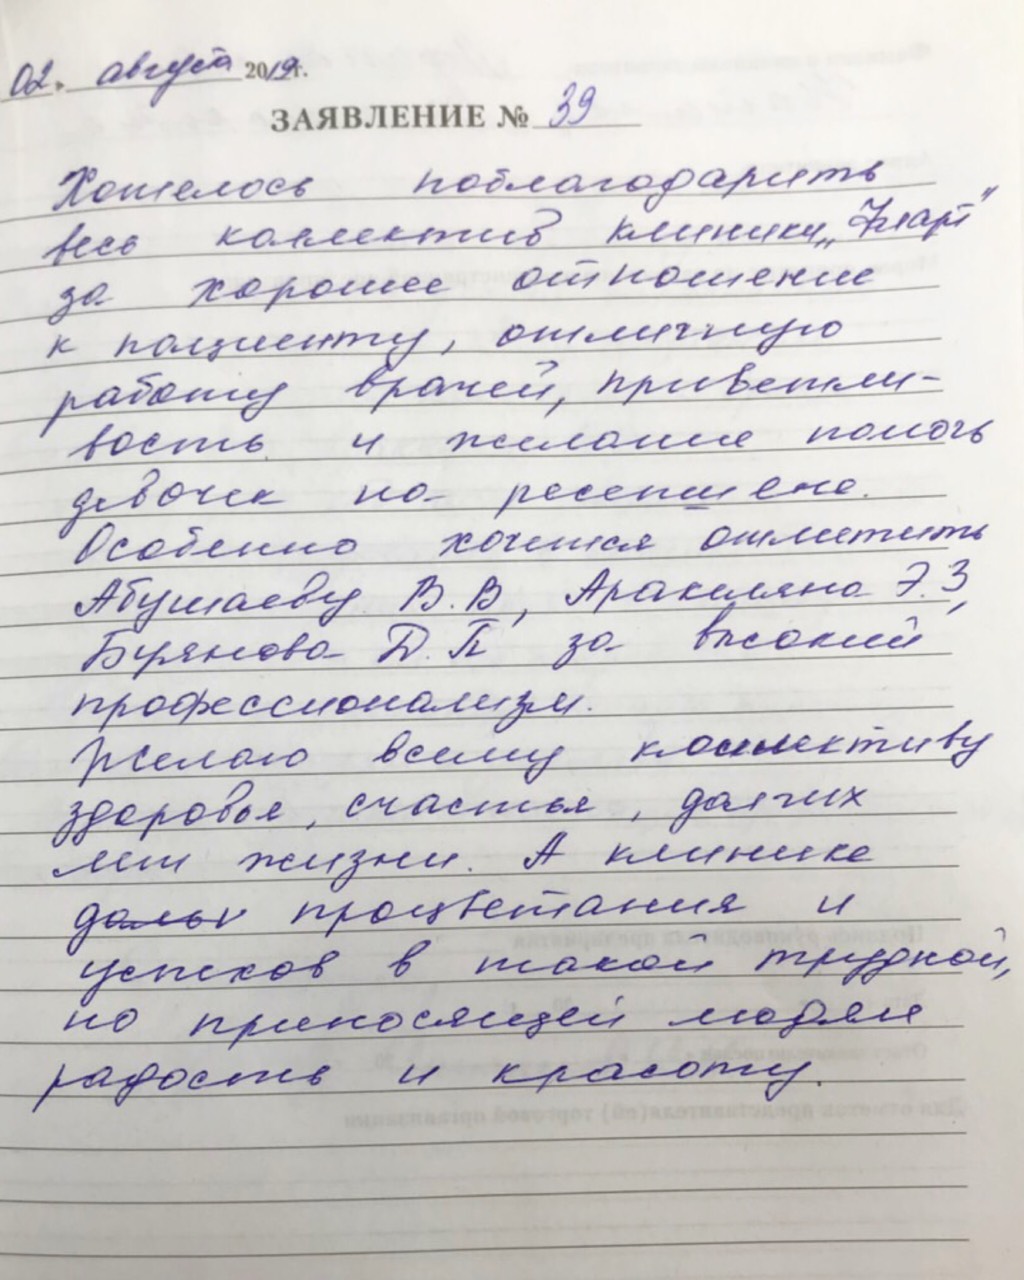 02. августа 2019г.
ЗАЯВЛЕНИЕ № 39
Хотелось поблагодарить
весь коллектив клиники
за хорошее отношение
к пациенту, отличную
работу врачей, приветли-
вость и желание помочь
девочек на ресепшене.
Особенно хочется отметить
Абушаеву В.В, Аракеляна Э.З,
Бурянова Д.П за высокий
профессионализм.
Желаю всему коллективу
здоровья, счастья, долгих
лет жизни. А клинике
процветания и
успехов в такой трудной,
но приносящей людям
радость и красоту.